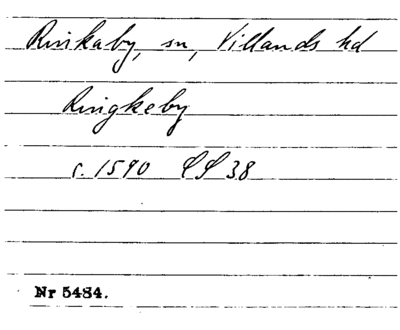 Rinkaby, sn, Villands hd
Ringkeby
c. 1590 LL 38
Nr 5484.